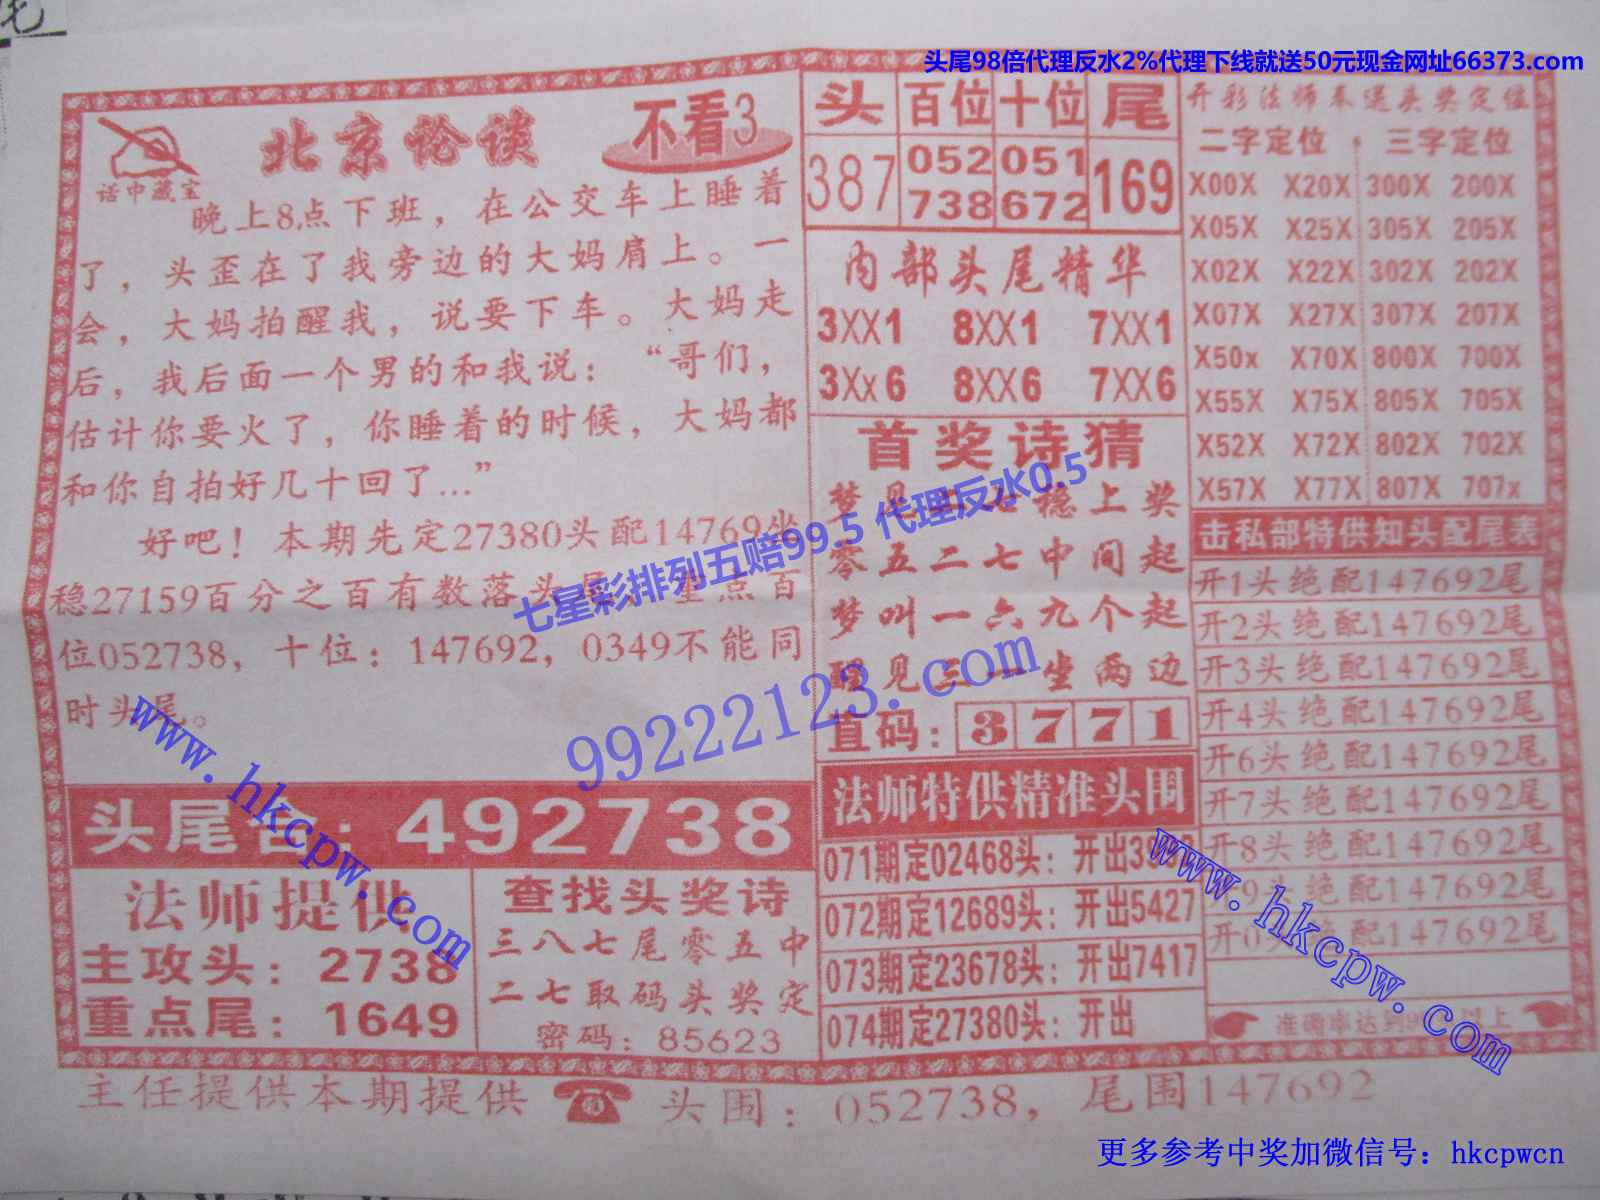 头尾98倍代理反水2%代理下线就送50元现金网址66373.com
话中藏宝
北京论谈
不看3
晚上8点下班，在公交车上睡着
了，头歪在了我旁边的大妈肩上。一
会，大妈拍醒我，说要下车。大妈走
后，我后面一个男的和我说：“哥们，
估计你要火了，你睡着的时候，大妈都
和你自拍好几十回了...”
好吧！本期先定27380头配14769坐
稳27159百分之百有数落头尾，重点百
位052738，十位：147692，0349不能同
时头尾。
头尾合：492738
法师提供
主攻头：2738
重点尾：1649
查找头奖诗
三八七尾零五中
二七取码头奖定
密码：85623
头 百位 十位 尾
387 052 051 169
738 672
内部头尾精华
3XX1 8XX1 7XX1
3Xx6 8XX6 7XX6
首奖诗猜
梦见 稳上奖
零五二七中间起
梦叫一六九个起
醒见三一坐两边
直码：3771
法师特供精准头围
071期定02468头：开出39
072期定12689头：开出5427
073期定23678头：开出7417
074期定27380头：开出
开彩法师奉送头奖定位
二字定位，三字定位
X00X X20X 300X 200X
X05X X25X 305X 205X
X02X X22X 302X 202X
X07X X27X 307X 207X
X50x X70X 800X 700X
X55X X75X 805X 705X
X52X X72X 802X 702X
X57X X77X 807X 707x
击私部特供知头配尾表
开1头绝配147692尾
开2头绝配147692尾
开3头绝配147692尾
开4头绝配147692尾
开6头绝配147692尾
开7头绝配147692尾
开8头绝配147692尾
开9头绝配147692尾
开0头绝配147692尾
准确率达到 以上
主任提供本期提供 头围：052738，尾围147692
七星彩排列五赔99.5 代理反水0.5
99222123.com
www.hkcpw.com
www.hkcpw.com
更多参考中奖加微信号：hkcpwcn